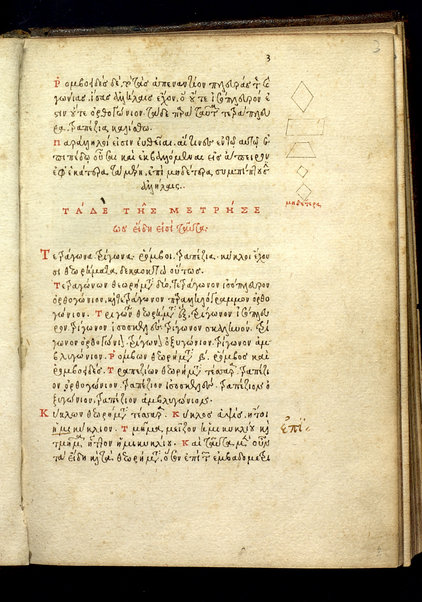 3
Ρομβοειδὲς δὲ, τὸ τὰς ἀπεναντίον πλευρὰς καὶ
γωνίας ἴσας ἀλλήλαις ἔχον, ὃ οὔτε ἰσόπλευρόν ἐ
στιν οὔτε ὀρθογώνιον. τὰ δὲ παρὰ ταῦτα τετράπλευ
ρα, τραπέζια καλείσθω.
Παράλληλοί εἰσιν εὐθεῖαι, αἵτινες ἐν τῷ αὐτῷ ἐ
πιπέδῳ οὖσαι καὶ ἐκβαλλόμεναι εἰς ἄπειρον
ἐφ' ἑκάτερα τὰ μέρη, ἐπὶ μηδέτερα συμπίπτουσιν
ἀλλήλαις.
μηδέτερα
ΤΑΔΕ ΤΗΣ ΜΕΤΡΗΣΕ
ως εἴδη εἰσὶ ταῦτα.
Τετράγωνα. τρίγωνα. ῥόμβοι. τραπέζια. κύκλοι ἔχου
σι θεωρήματα δεκαοκτὼ οὕτως.
Τετραγώνων θεωρήματα δύο, τετράγωνον ἰσόπλευρον
ὀρθογώνιον, καὶ τετράγωνον παραλληλόγραμμον ὀρθο
γώνιον. Τριγώνων θεωρήματα ἕξ. τρίγωνον ἰσόπλευ
ρον. τρίγωνον ἰσοσκελές. τρίγωνον σκαληνόν. τρί
γωνον ὀρθογώνιον. τρίγωνον ὀξυγώνιον. τρίγωνον ἀμ
βλυγώνιον. Ῥόμβων θεωρήματα β. ῥόμβος καὶ
ῥομβοειδές. Τραπεζίων θεωρήματα τέσσαρα. τραπέζι
ον ὀρθογώνιον. τραπέζιον ἰσοσκελές. τραπέζιον ὀ
ξυγώνιον. τραπέζιον ἀμβλυγώνιον.
Κύκλων θεωρήματα τέσσαρα. Κύκλος ἁπλῶς. ἤτοι
ἡμικύκλιον. Τμῆμα, μεῖζον ἡμικυκλίου καὶ
τμῆμα ἧττον ἡμικυκλίου. Καὶ ταῦτα μὲν οὖν
τὰ εἴδη καὶ τὰ θεωρήματα,
ἐπὶ